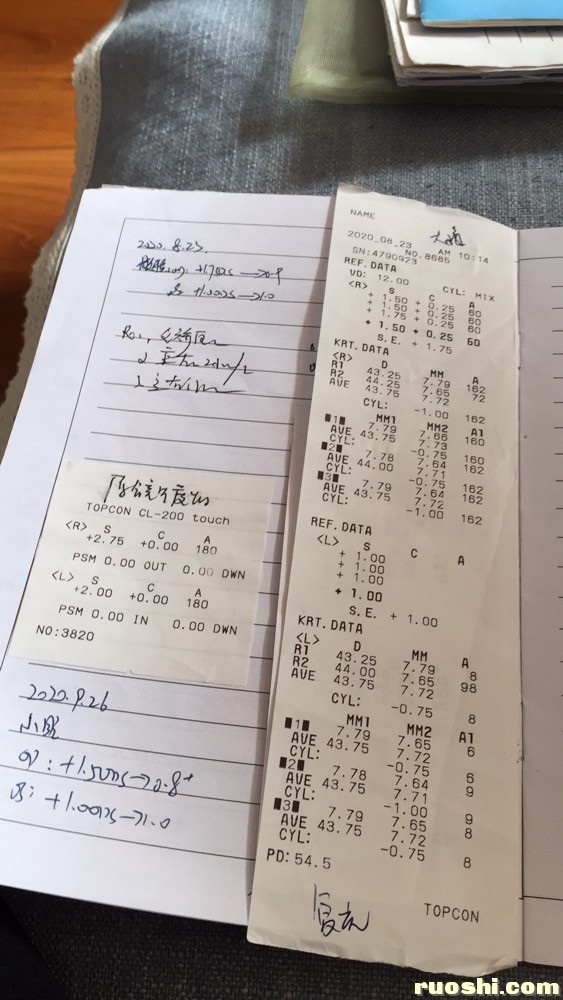 2020.8.23
NAME
2020_08_23 AM 10:14
NO.8685
SN:4790923
REF.DATA
VD: 12.00 CYL: MIX
<R> S C A
+ 1.50 + 0.25 60
+ 1.50 + 0.25 60
+ 1.75 + 0.25 60
+ 1.50 + 0.25 60
S.E. + 1.75
KRT.DATA
<R> D MM A
R1 43.25 7.79 162
R2 44.25 7.65 72
AVE 43.75 7.72
CYL: -1.00 162
MM1 MM2 A1
■1■ 7.79 7.66 160
AVE 43.75 7.73
CYL: -0.75 160
■2■ 7.78 7.64 162
AVE 44.00 7.71
CYL: -0.75 162
■3■ 7.79 7.64 162
AVE 43.75 7.72
CYL: -1.00 162
REF.DATA
<L> S C A
+ 1.00
+ 1.00
+ 1.00
+ 1.00
S.E. + 1.00
KRT.DATA
<L> D MM A
R1 43.25 7.79 8
R2 44.00 7.65 98
AVE 43.75 7.72
CYL: -0.75 8
MM1 MM2 A1
■1■ 7.79 7.65 6
AVE 43.75 7.72
CYL: -0.75 6
■2■ 7.78 7.64 9
AVE 43.75 7.71
CYL: -1.00 9
■3■ 7.79 7.65 8
AVE 43.75 7.72
CYL: -0.75 8
PD: 54.5
TOPCON
TOPCON CL-200 touch
<R> S C A
+2.75 +0.00 180
PSM 0.00 OUT 0.00 DWN
<L> S C A
+2.00 +0.00 180
PSM 0.00 IN 0.00 DWN
NO:3820
2020.9.26
小瞳
+1.50DS→0.8+
+1.00DS→1.0
ruoshi.com